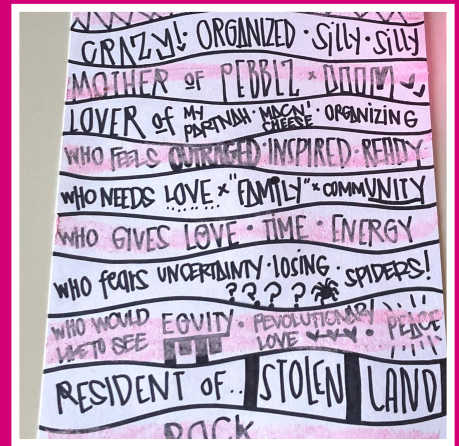 CRAZY!· ORGANIZED · Silly · Silly
MOTHER of PEBBLZ × DOOM
LOVER of MY PARTNAH · MACN' CHEESE · ORGANIZING
WHO FEELS OUTRAGED · INSPIRED · READY
WHO NEEDS LOVE × "FAMILY" × COMMUNITY
WHO GIVES LOVE · TIME · ENERGY
WHO fears UNCERTAINTY · LOSING · SPIDERS!
? ? ? ?
WHO WOULD LIKE TO SEE EQUITY · REVOLUTIONARY LOVE · PEACE
RESIDENT OF.. STOLEN LAND
ROCK